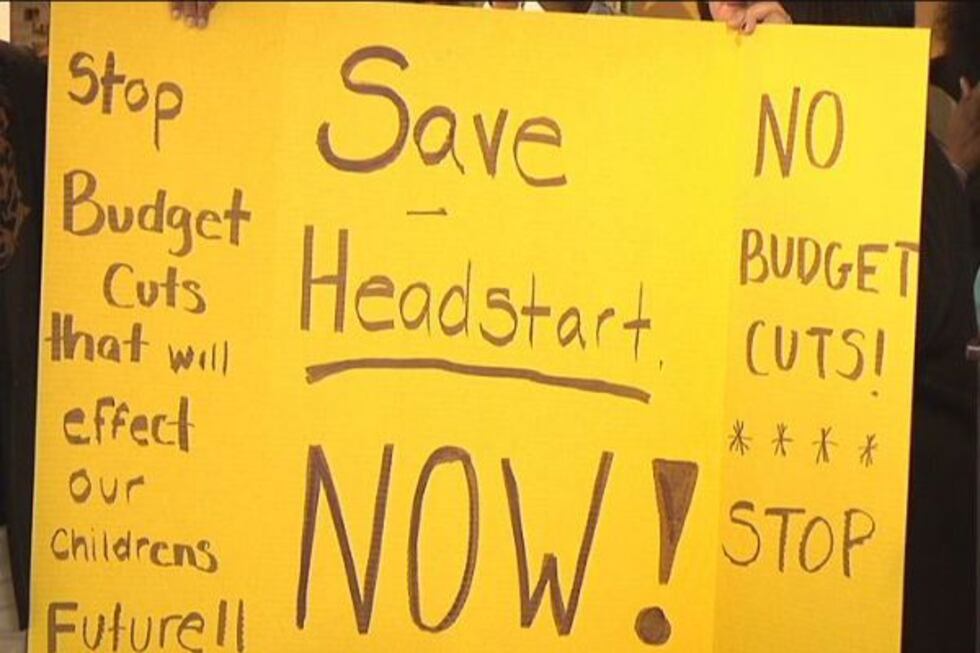 Stop
Budget
Cuts
that will
effect
our
Childrens
Future!!
Save
Headstart.
NOW!
NO
BUDGET
CUTS!
****
STOP